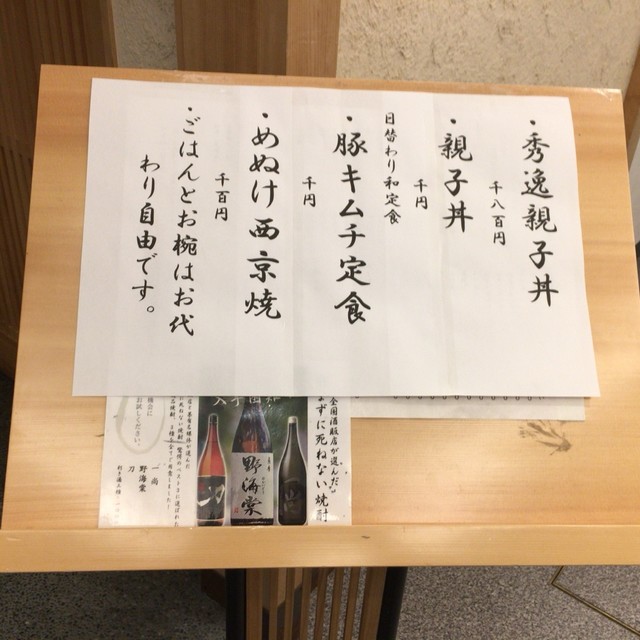 ・秀逸親子丼
千八百円
・親子丼
千円
日替わり和定食
・豚キムチ定食
千円
・めぬけ西京焼
千百円
・ごはんとお椀はお代
わり自由です。
全国酒販店が選んだ。
ずに死ねない焼酎
野海棠
一尚
野海棠
刀